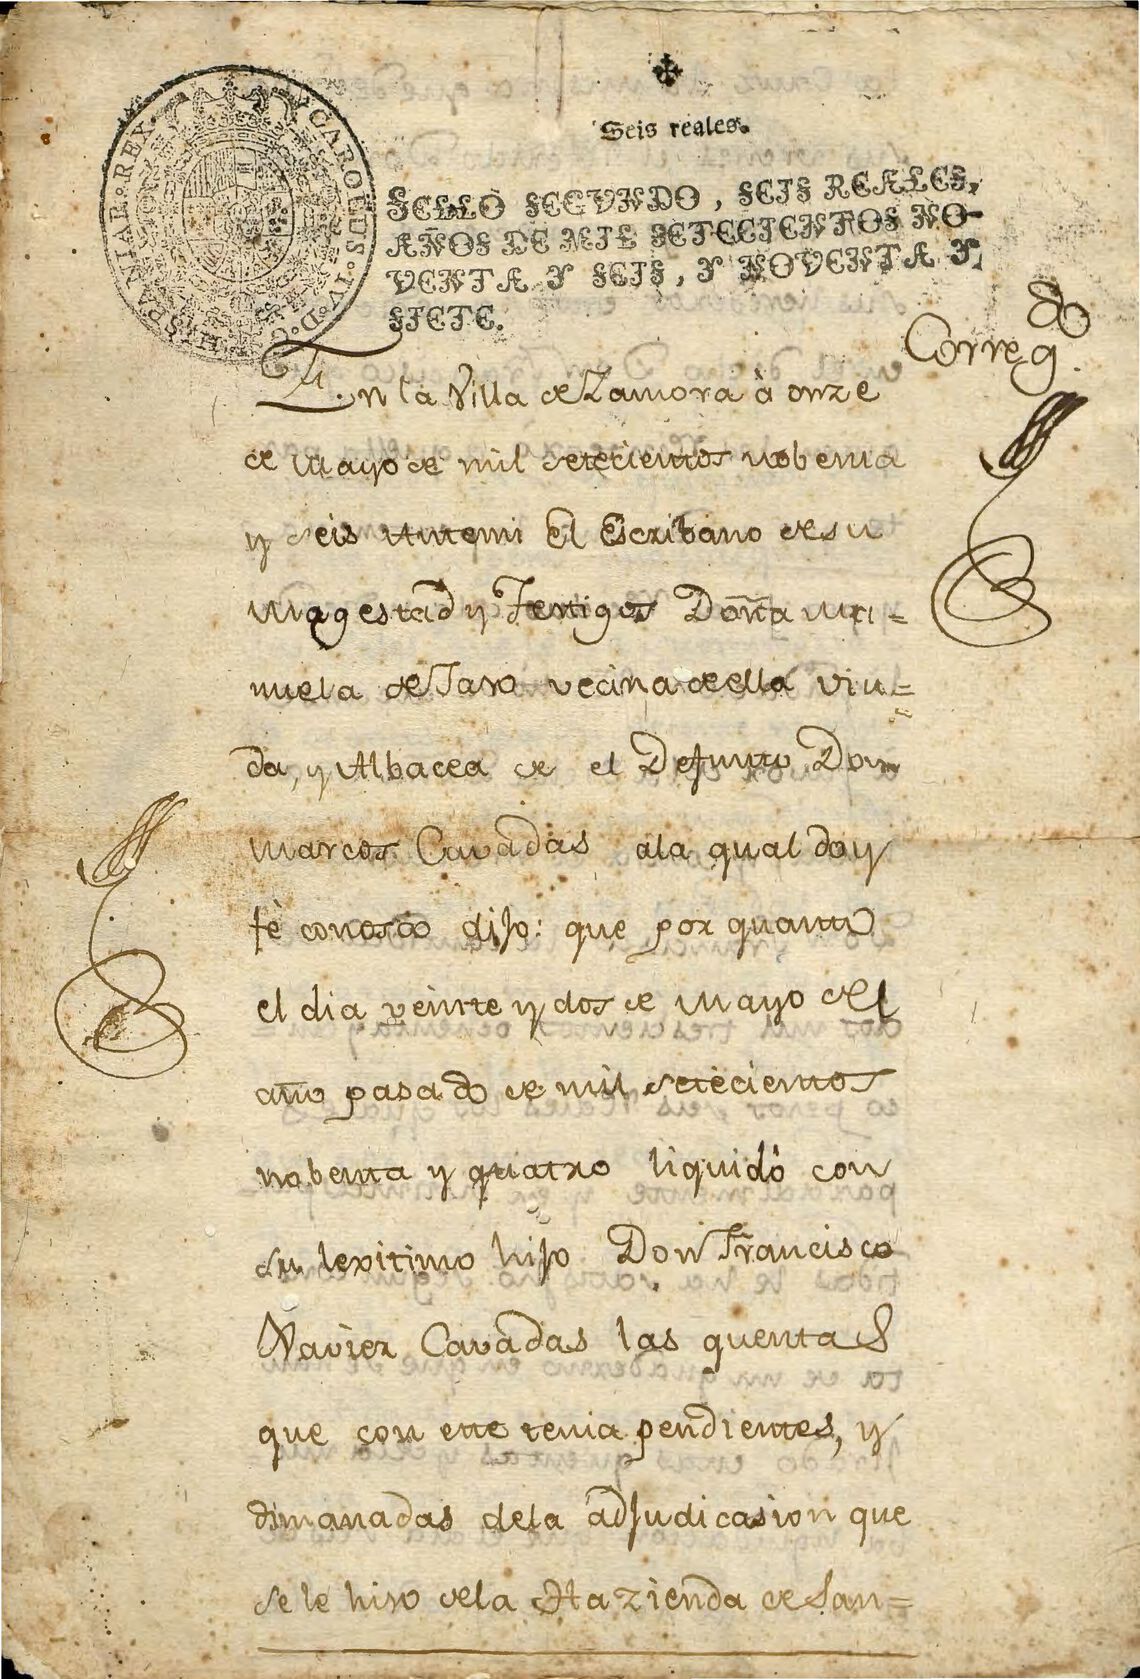 HISPANIAR. REX. CAROLUS. IV. D. G.
Seis reales.
SELLO SEGVNDO, SEIS REALES,
AÑOS DE MIL SETECIENTOS NO-
VENTA Y SEIS, Y NOVENTA Y
SIETE.
Correg.do
En la Villa de Zamora à onze
de Mayo de mil setecientos nobenta
y seis Antemi El Escribano de su
Magestad y Testigos Doña Ma=
nuela de Jaso vecina de ella viu=
da, y Albacea de el Defunto Don
Marcos Cavadas ala qual doy
fè conosco dijo: que por quanto
el dia veinte y dos de Mayo del
año pasado de mil setecientos
nobenta y quatro liquidó con
su lexitimo hijo Don Francisco
Xavier Cavadas las quentas
que con este tenia pendientes, y
dimanadas dela adjudicasion que
se le hiso dela Hazienda de San=